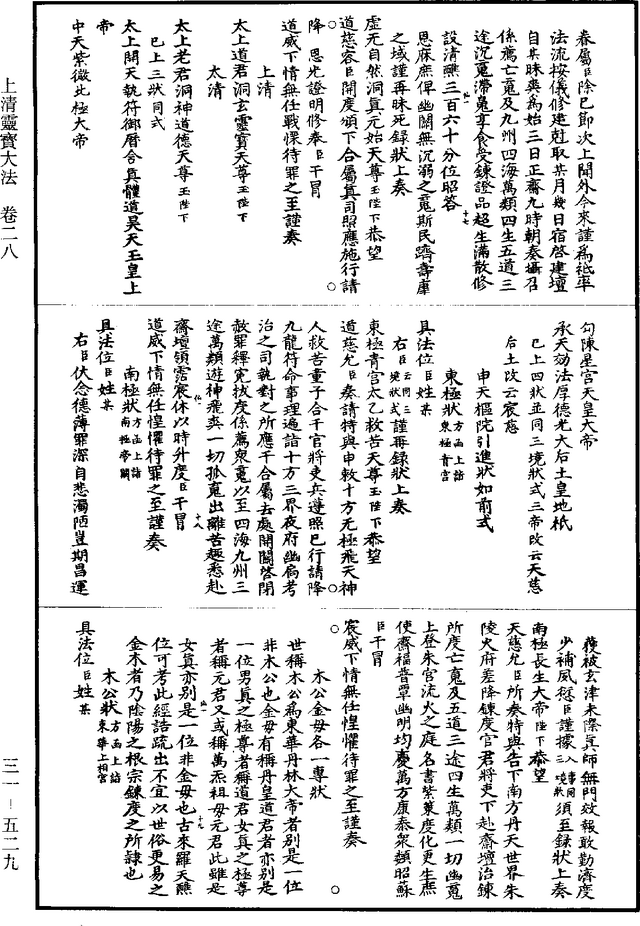 上清靈寶大法　卷二八
眷屬臣除已即次上聞外今來謹為祗率
法流按儀修建尅取某月幾日宿啓建壇
自其昧爽為始三日正齋九時朝奏攝召
係薦亡䰟及九州四海萬類四生五道三
途沉䰟滯魄享食受鍊證品超生滿散修
設清醮三百六十分位昭答
恩庥庶俾幽關無沉溺之䰟斯民躋壽庫
之域謹再昧死錄狀上奏
虛无自然洞真元始天尊玉陛下恭望
道慈容臣開度頒下合屬真司照應施行請
降　恩光證明修奉臣干冒
道威下情無任戰慄待罪之至謹奏
上清
太上道君洞玄靈寶天尊玉陛下
太清
太上老君洞神道德天尊玉陛下
已上三狀同式
太上開天執符御曆含真體道昊天玉皇上
帝
中天紫微北極大帝
句陳星宮天皇大帝
承天効法厚德光大后土皇地祇
已上四狀並同三境狀式三帝改云天慈
后土改云宸慈
申天樞院引進狀如前式
東極狀方函上詣東極青宮
具法位臣姓某
右臣云同三境狀式謹再錄狀上奏
東極青宮太乙救苦天尊玉陛下恭望
道慈允臣奏請特與申敕十方无極飛天神
人救苦童子合干官將吏兵遵照已行請降
九龍符命事理遍詣十方三界夜府幽扃考
治之司執對之所應干合屬去處開關啓閉
赦罪釋寃拔度係薦衆䰟以至四海九州三
途萬類遊神飛爽一切孤䰟出離苦趣悉赴
齋壇領霑宸休以時升度臣干冒
道威下情無任惶懼待罪之至謹奏
南極狀方函上詣南極帝闕
具法位臣姓某
右臣伏念德薄罪深自悲濁陋豈期昌運
獲被玄津未際真師無門效報敢勤濟度
少補夙愆臣謹據入事同三境狀須至錄狀上奏
南極長生大帝陛下恭望
天慈允臣所奏特與告下南方丹天世界朱
陵火府差降鍊度官君將吏下赴齋壇治鍊
所度亡䰟及五道三途四生萬類一切幽䰟
上登朱宮流火之庭名書紫策度化更生庶
使齋福普覃幽明均慶萬方康泰衆類昭蘇
臣干冒
宸威下情無任惶懼待罪之至謹奏
木公金母各一專狀
世稱木公為東華丹林大帝者別是一位
非木公也金母有稱丹皇道君者亦別是
一位男真之極尊者稱道君女真之極尊
者稱元君又或稱萬炁祖母元君此雖是
女真亦別是一位非金母也古來羅天醮
位可考此經誥疏出不宜以世俗更易之
金木者乃陰陽之根宗鍊度之所隸也
木公狀方函上詣東華上相宮
具法位臣姓某
三一－五二九